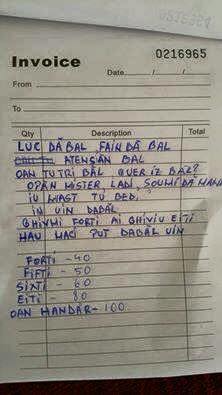 0216965
Invoice
Date / /
From
To
Qty Description Total
LUC DĂ BAL, FAIN DĂ BAL
ATENȘĂN BAL
OAN TU TRI BĂL QUER IZ BAL?
OPĂN MISTER LADI, SOUMI DĂ MANI
IU LIAST TU DED.
IN UIN DABĂL
GHIVMI FORTI AI GHIVIU EITI
HAU MACI PUT DABĂL UIN
FORTI - 40
FIFTI - 50
SIXTI - 60
EITI - 80
OAN HANDĂR - 100